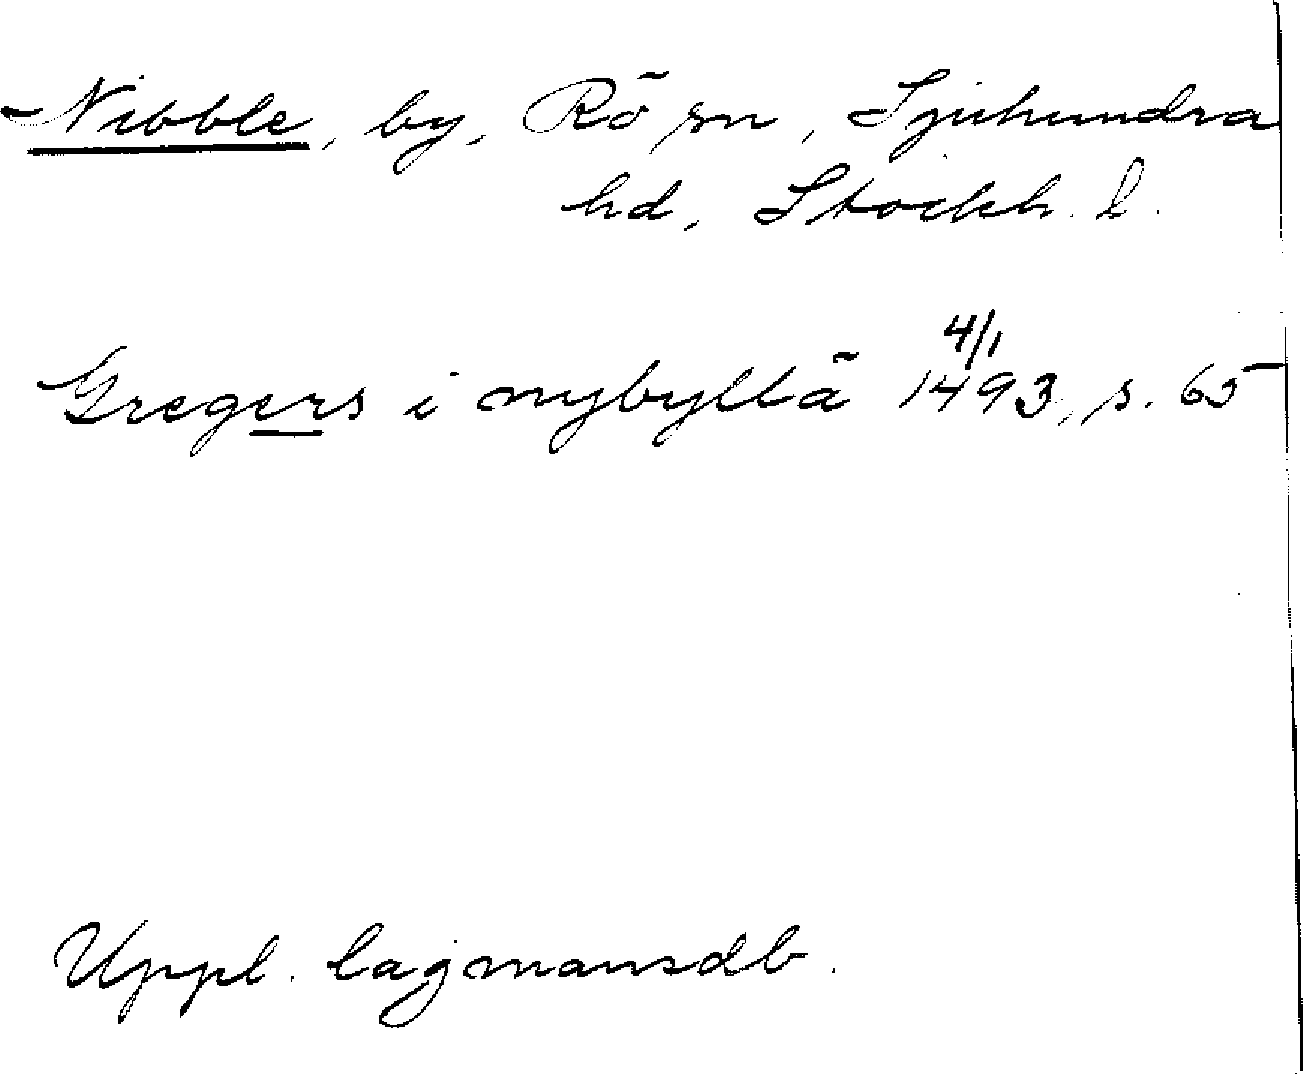 Nibble, by, Rö sn, Sjuhundra
hd, Stockh. l.
4/1
Gregers i nybyllä 1493, s. 65
Uppl. lagmansdb.